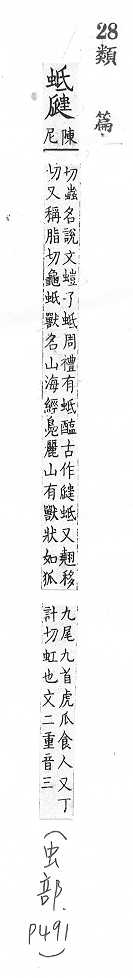 28
類篇
蚳𧖑
陳尼
切蟲名說文螘子蚳周禮有蚳醢古作𧖑蚳又翹移
切又稱脂切龜蚳獸名山海經鳧麗山有獸狀如狐
九尾九首虎爪食人又丁
計切虹也文二重音三
(虫部.
P491)